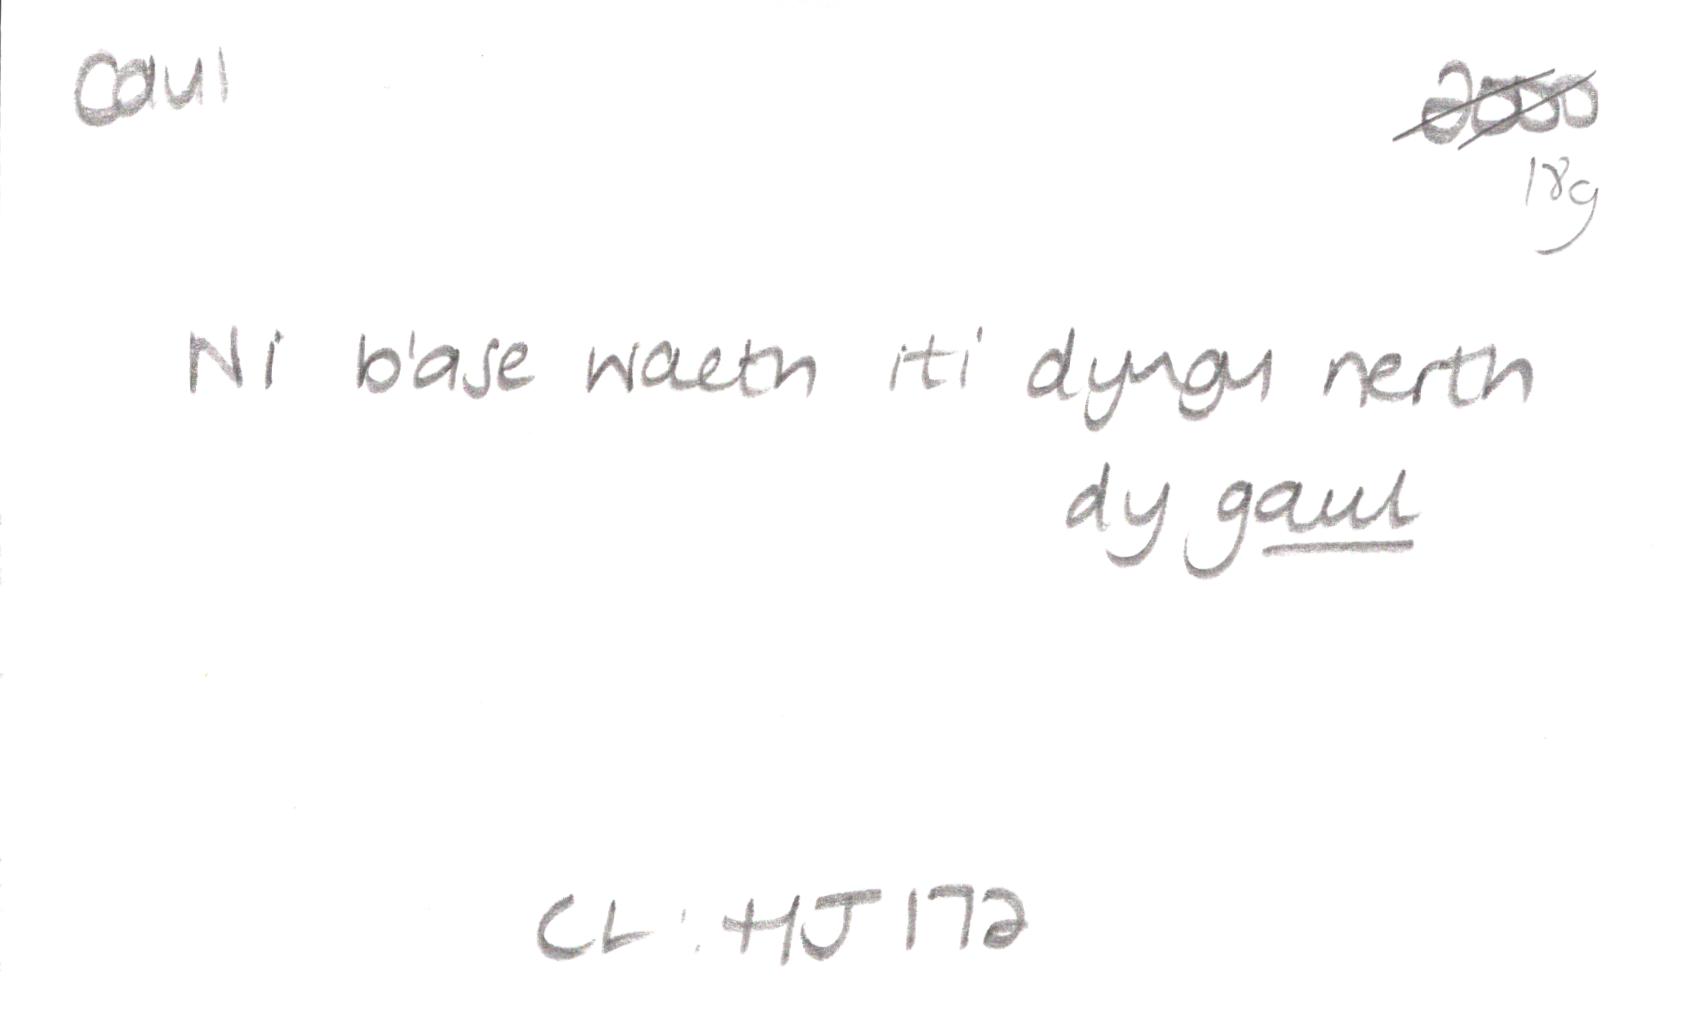 caul
2000
18g
Ni b'ase waeth iti dyngu nerth
dy gaul
CL: HJ 172